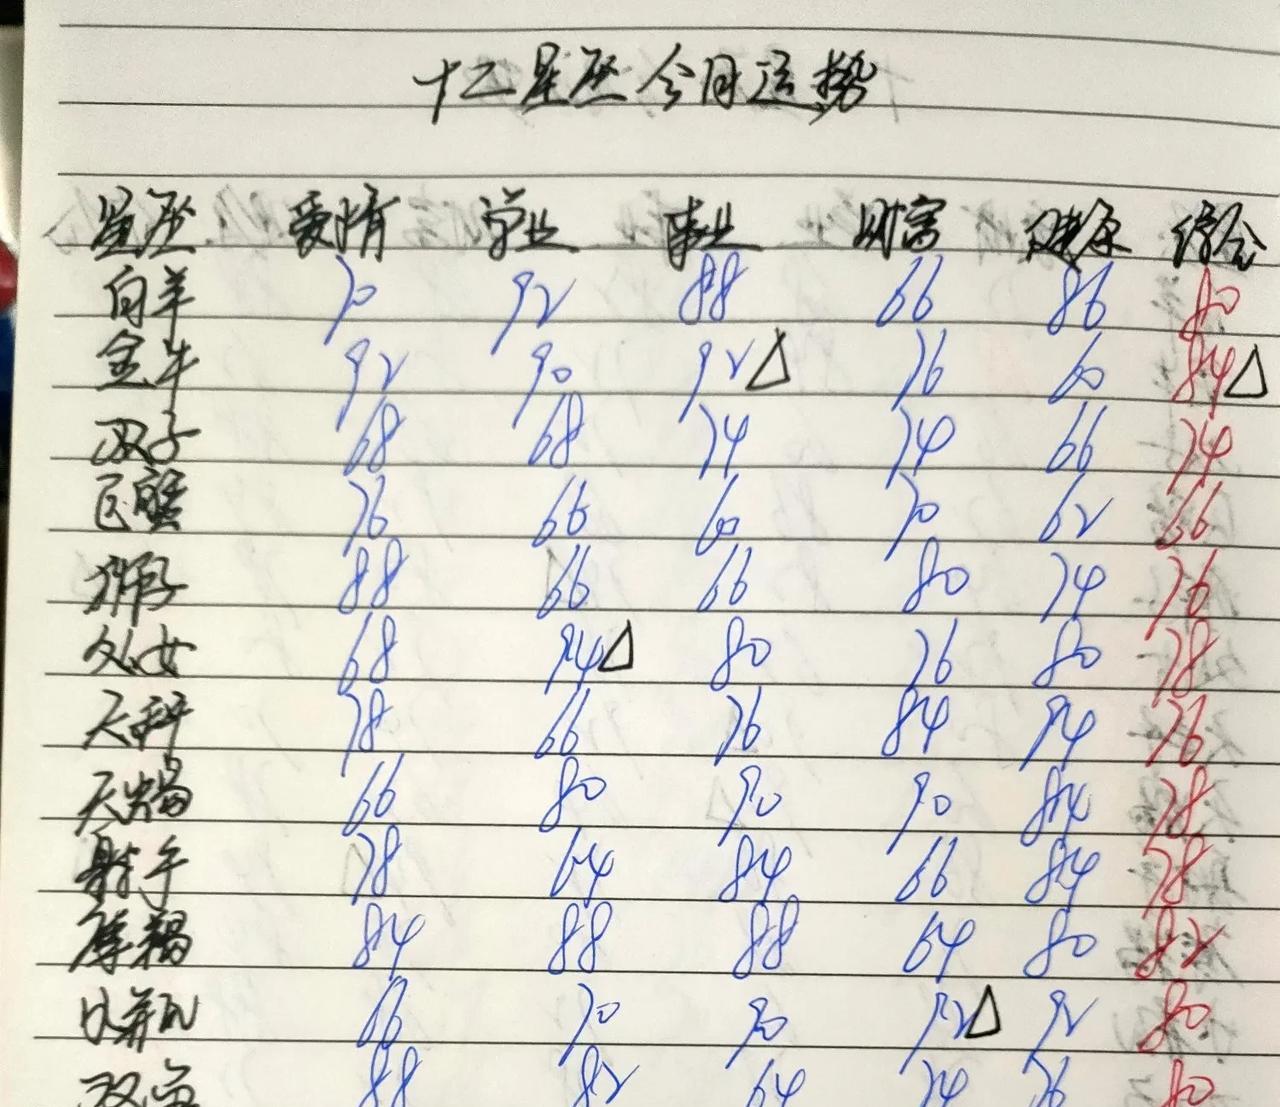 十二星座今日运势
星座 爱情 学业 事业 财富 健康 综合
白羊 70 92 88 66 86 80
金牛 92 90 92△ 76 60 84△
双子 68 68 74 74 66 74
巨蟹 76 66 60 70 62 66
狮子 88 66 66 80 74 76
处女 68 94△ 80 76 80 78
天秤 78 66 76 84 94 76
天蝎 66 80 90 90 84 78
射手 78 64 84 66 84 78
摩羯 84 88 88 64 80 82
水瓶 66 70 90 92△ 92 80
双鱼 88 82 64 74 76 80